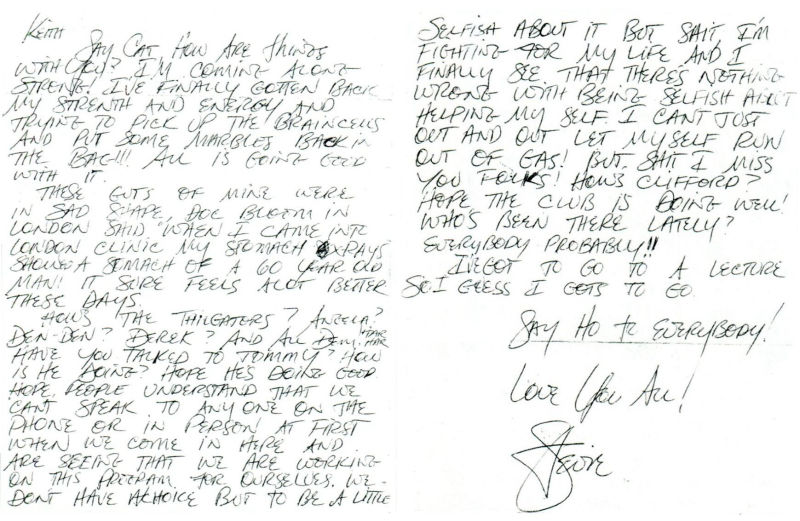 Keith
Say Cat How Are things
with you? I'm coming along
strong! I've finally gotten back
my strenth and energy and
trying to pick up the braincells
and put some marbles back in
the bag!!! All is going good
with it.
These guts of mine were
in sad shape, Doc Bloom in
London said "when I came into
London clinic my stomach xrays
showed a stomach of a 60 year old
man! It sure feels alot better
these days.
How's the Angela?
Den-Den? Derek? And all dem! Har Har
Have you talked to Tommy? How
is he doing? Hope he's doing good
Hope people understand that we
can't speak to any one on the
phone or in person at first
when we come in here and
are seeing that we are working
on this program for ourselves. We
dont have a choice but to be a little
selfish about it but shit, I'm
fighting for my life and I
finally see that there's nothing
wrong with being selfish about
helping my self. I can't just
out and out let myself run
out of gas! But shit I miss
you folks! How's Clifford?
Hope the club is doing well!
Who's been there lately?
Everybody probably!!
I've got to go to a lecture
So I guess I gots to go.
Say Ho to everybody!
Love You All!
Stevie